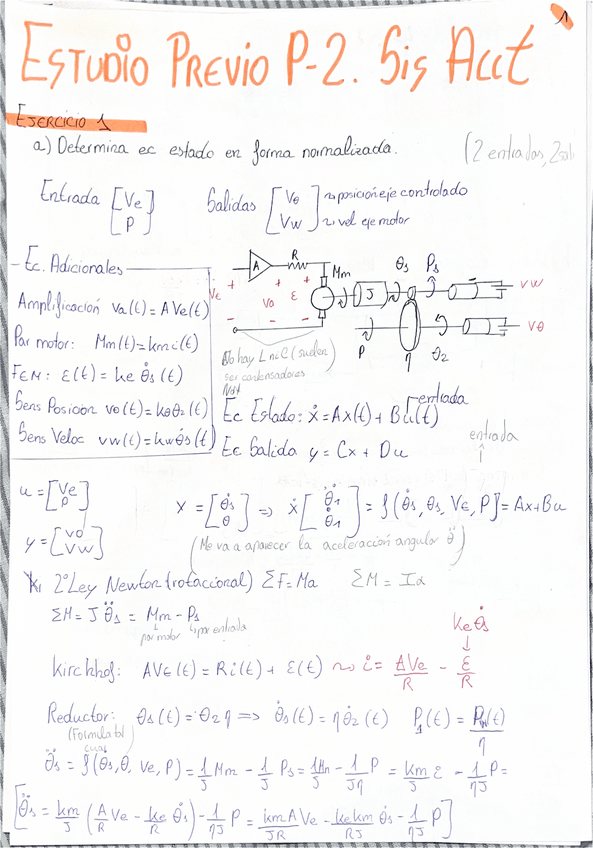 1
ESTUDIO PREVIO P-2. Sis Acct
EJERCICIO 1
a) Determina ec estado en forma normalizada. (2 entradas, 2sali
Entrada [Ve P] Salidas [Vθ Vw] ~> posición eje controlado
~> vel eje motor
Ec. Adicionales
Amplificación Va(t)=AVe(t)
Par motor: Mm(t)=kmi(t)
FEM: ε(t)=ke θ̇1(t)
Sens Posición vθ(t)=kθθ2(t)
Sens Veloc vw(t)=kwθ̇1(t)
A R Mm θ1 P1 Vw
Ve + - Va + - ε + - J
P η θ2 Vθ
No hay L ni C (suelen
ser condensadores
Ec Estado: ẋ=Ax(t)+Bu(t) entrada
Ec Salida y=Cx+Du
entrada
u=[Ve P]
y=[vθ vw]
X=[θ̇1 θ] => ẋ[θ̈1 θ̇1]=f(θ̇1, θ1, Ve, P]=Ax+Bu
(Me va a aparecer la aceleración angular θ̈)
2ª Ley Newton (rotaccional) ΣF=Ma ΣM=Iα
ΣM=J θ̈1=Mm-P1
par motor par entrada
ke θ̇1
↓
Kirchhof: AVe(t)=Ri(t)+ε(t) ~> i=AVe/R - ε/R
Reductor: θ1(t)=θ2η => θ̇1(t)=ηθ̇2(t) P1(t)=P(t)/η
θ̈1=f(θ1, θ, Ve, P)=1/J Mm - 1/J P1=1/J Mm - 1/Jη P=km/J i - 1/ηJ P=
[θ̈1=km/J (A/R Ve - ke/R θ̇1) - 1/ηJ P=kmA/JR Ve - kekm/RJ θ̇1 - 1/ηJ P]